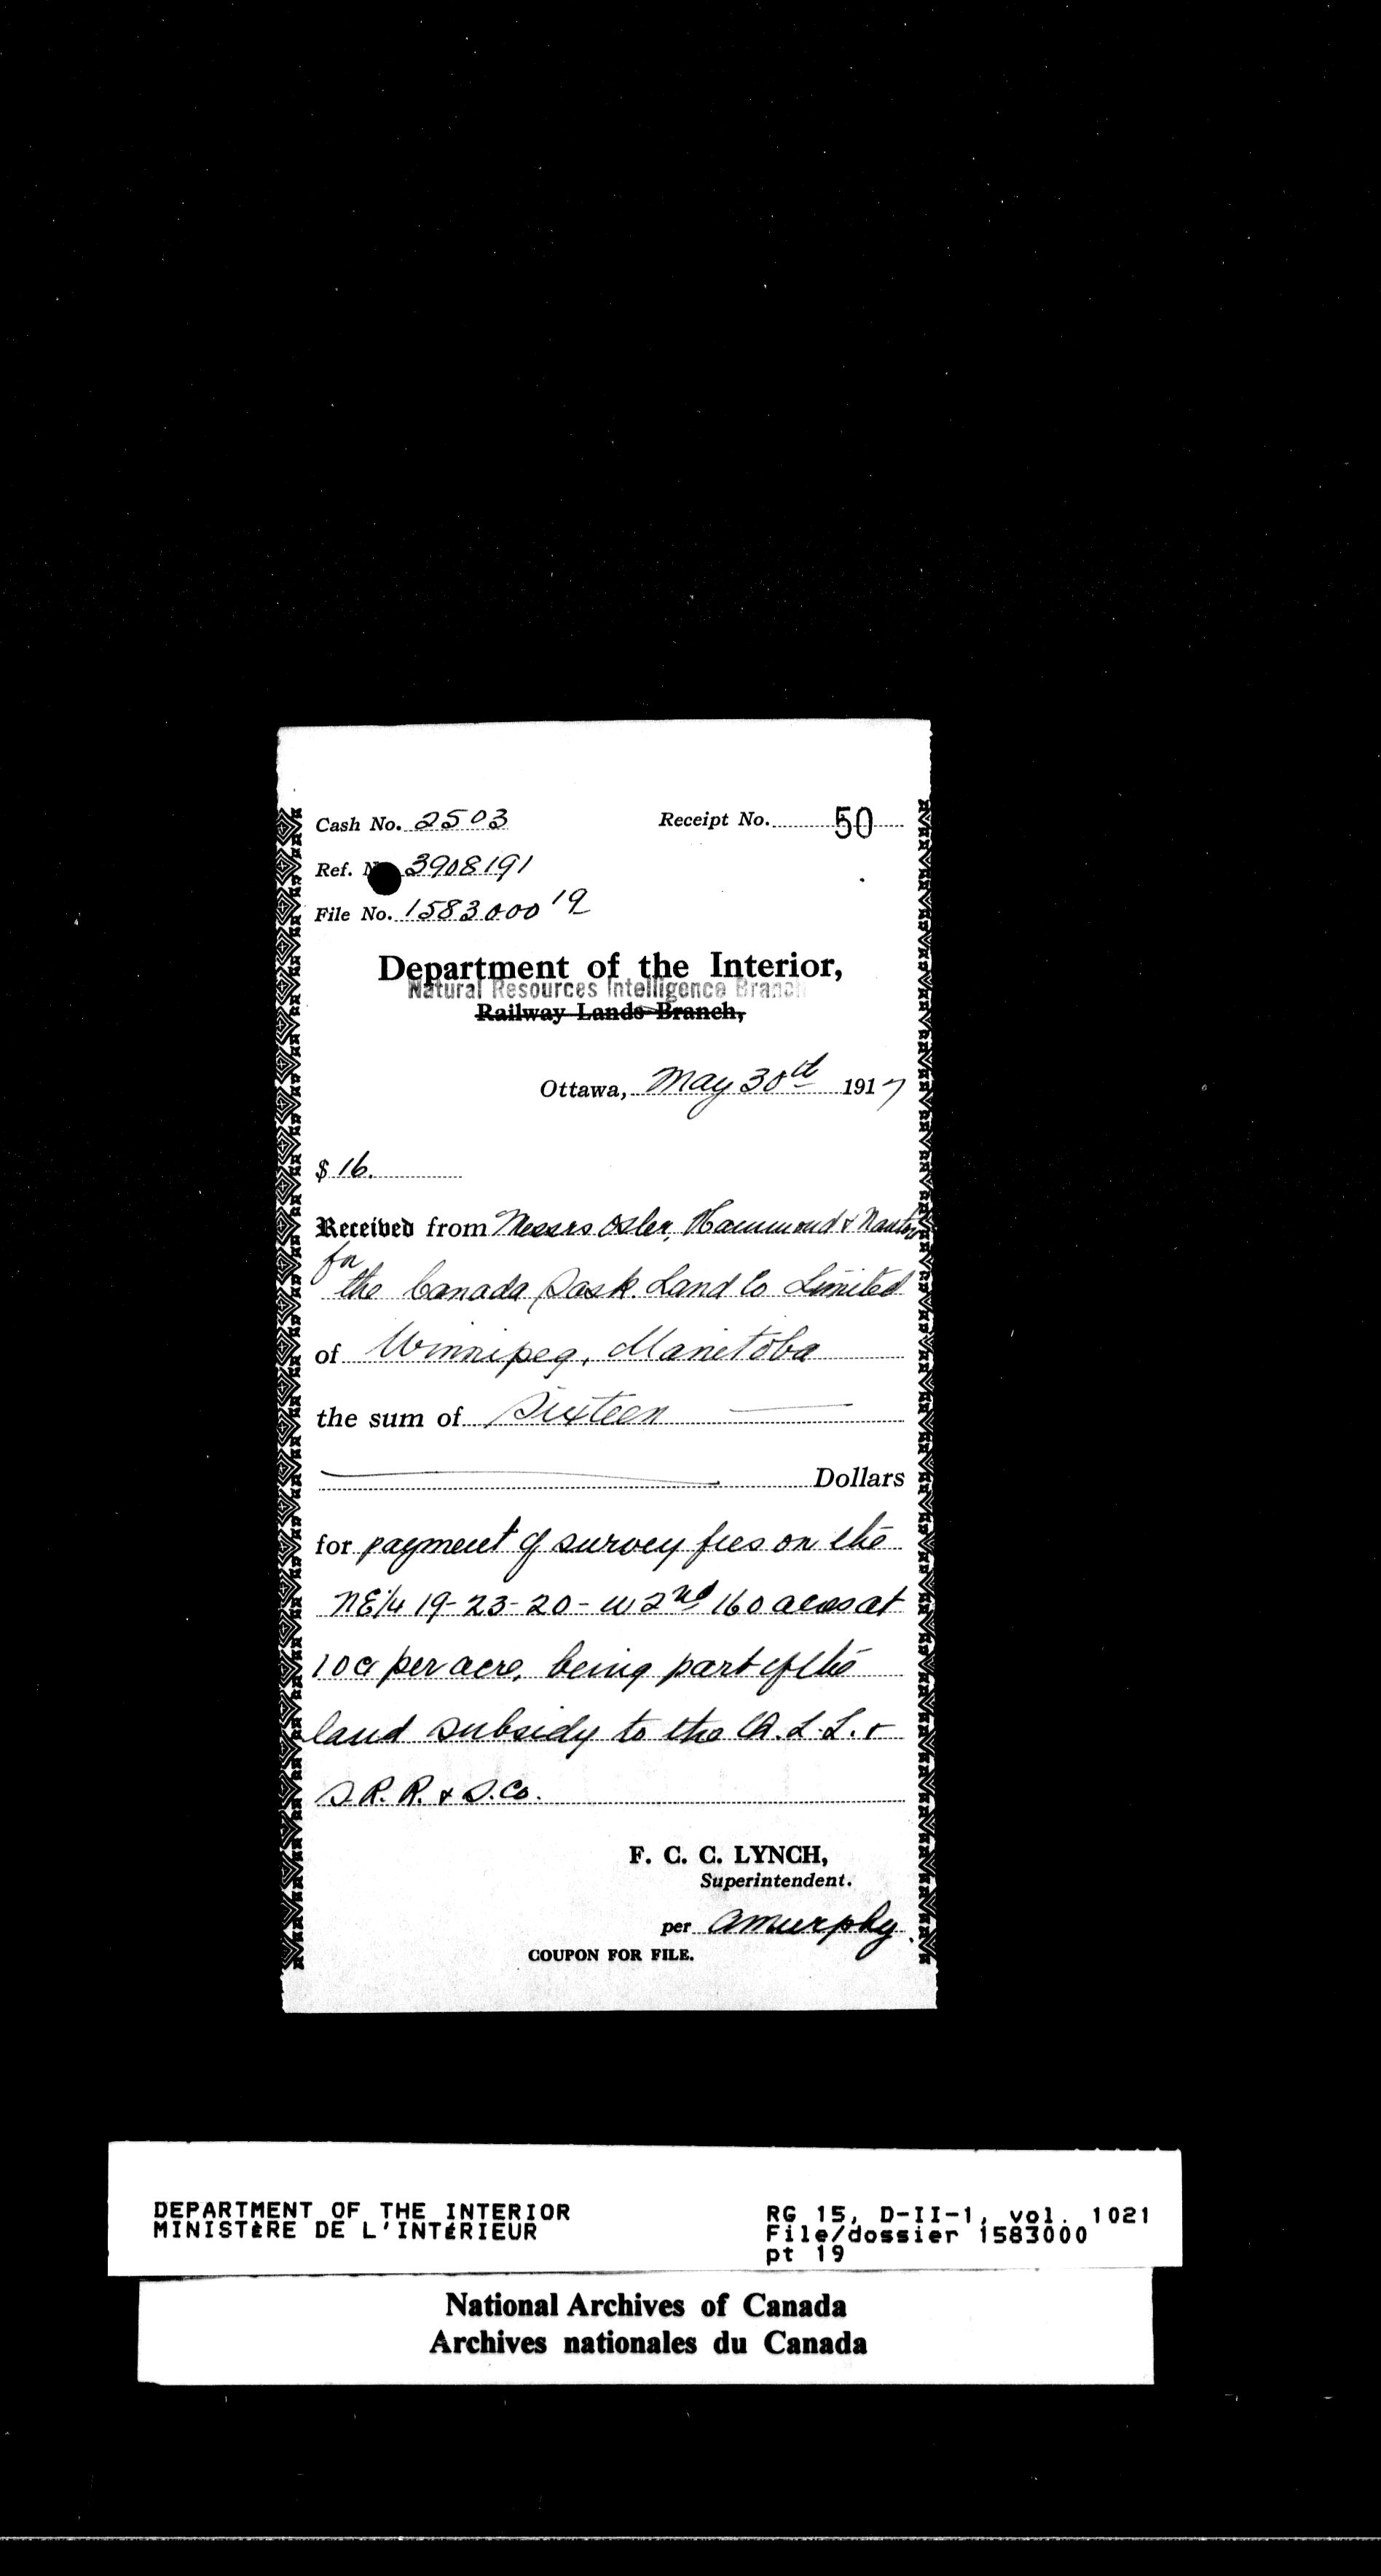 Cash No. 2503 Receipt No. 50
Ref. 3908191
File No. 1583000 19
Department of the Interior,
Natural Resources Intelligence Branch
Railway Lands Branch,
Ottawa, May 30th 1917
$ 16.
Received from Messrs Osler, Hammond & Nanton
for
the Canada Sask. Land Co Limited
of Winnipeg, Manitoba
the sum of Sixteen
Dollars
for payment of survey fees on the
NE1/4 19-23-20-W2nd 160 acres at
10c per acre, being part of the
land subsidy to the Q.L.L. &
S.R.R. & S.Co.
F. C. C. LYNCH,
Superintendent.
per AMurphy.
COUPON FOR FILE.
DEPARTMENT OF THE INTERIOR
MINISTÈRE DE L'INTÉRIEUR
RG 15, D-II-1, vol. 1021
File/dossier 1583000
pt 19
National Archives of Canada
Archives nationales du Canada